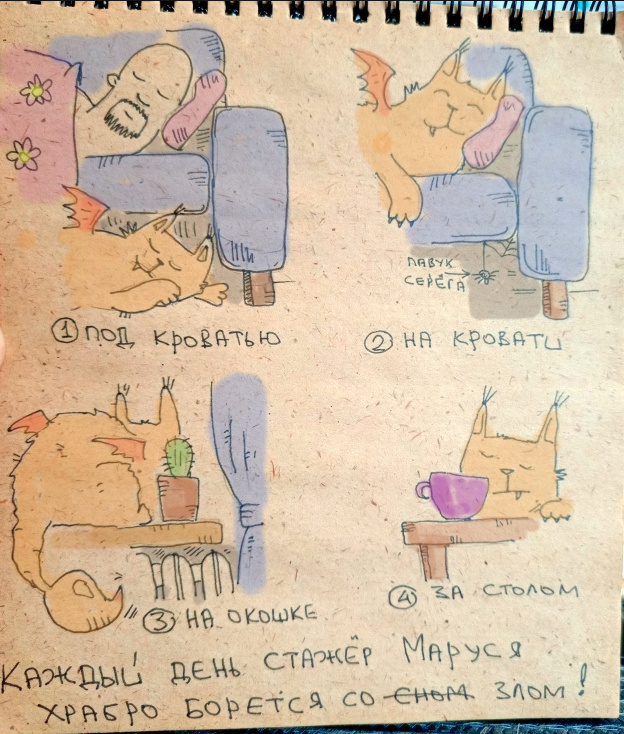 ① ПОД КРОВАТЬЮ
ПАВУК
СЕРЁГА
② НА КРОВАТИ
③ НА ОКОШКЕ
④ ЗА СТОЛОМ
КАЖДЫЙ ДЕНЬ СТАЖЁР МАРУСЯ
ХРАБРО БОРЕТСЯ СО СНОМ ЗЛОМ!